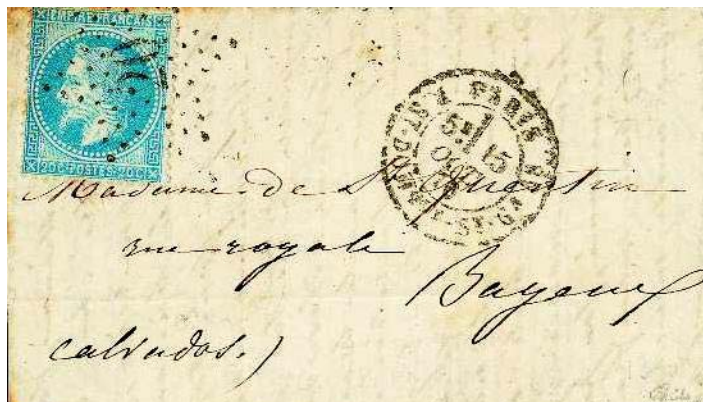 EMPIRE FRANÇAIS
20 C POSTES 20 C
PARIS
5E 15
OCT
Madame de St Quentin
rue royale
Bayeux
calvados.)